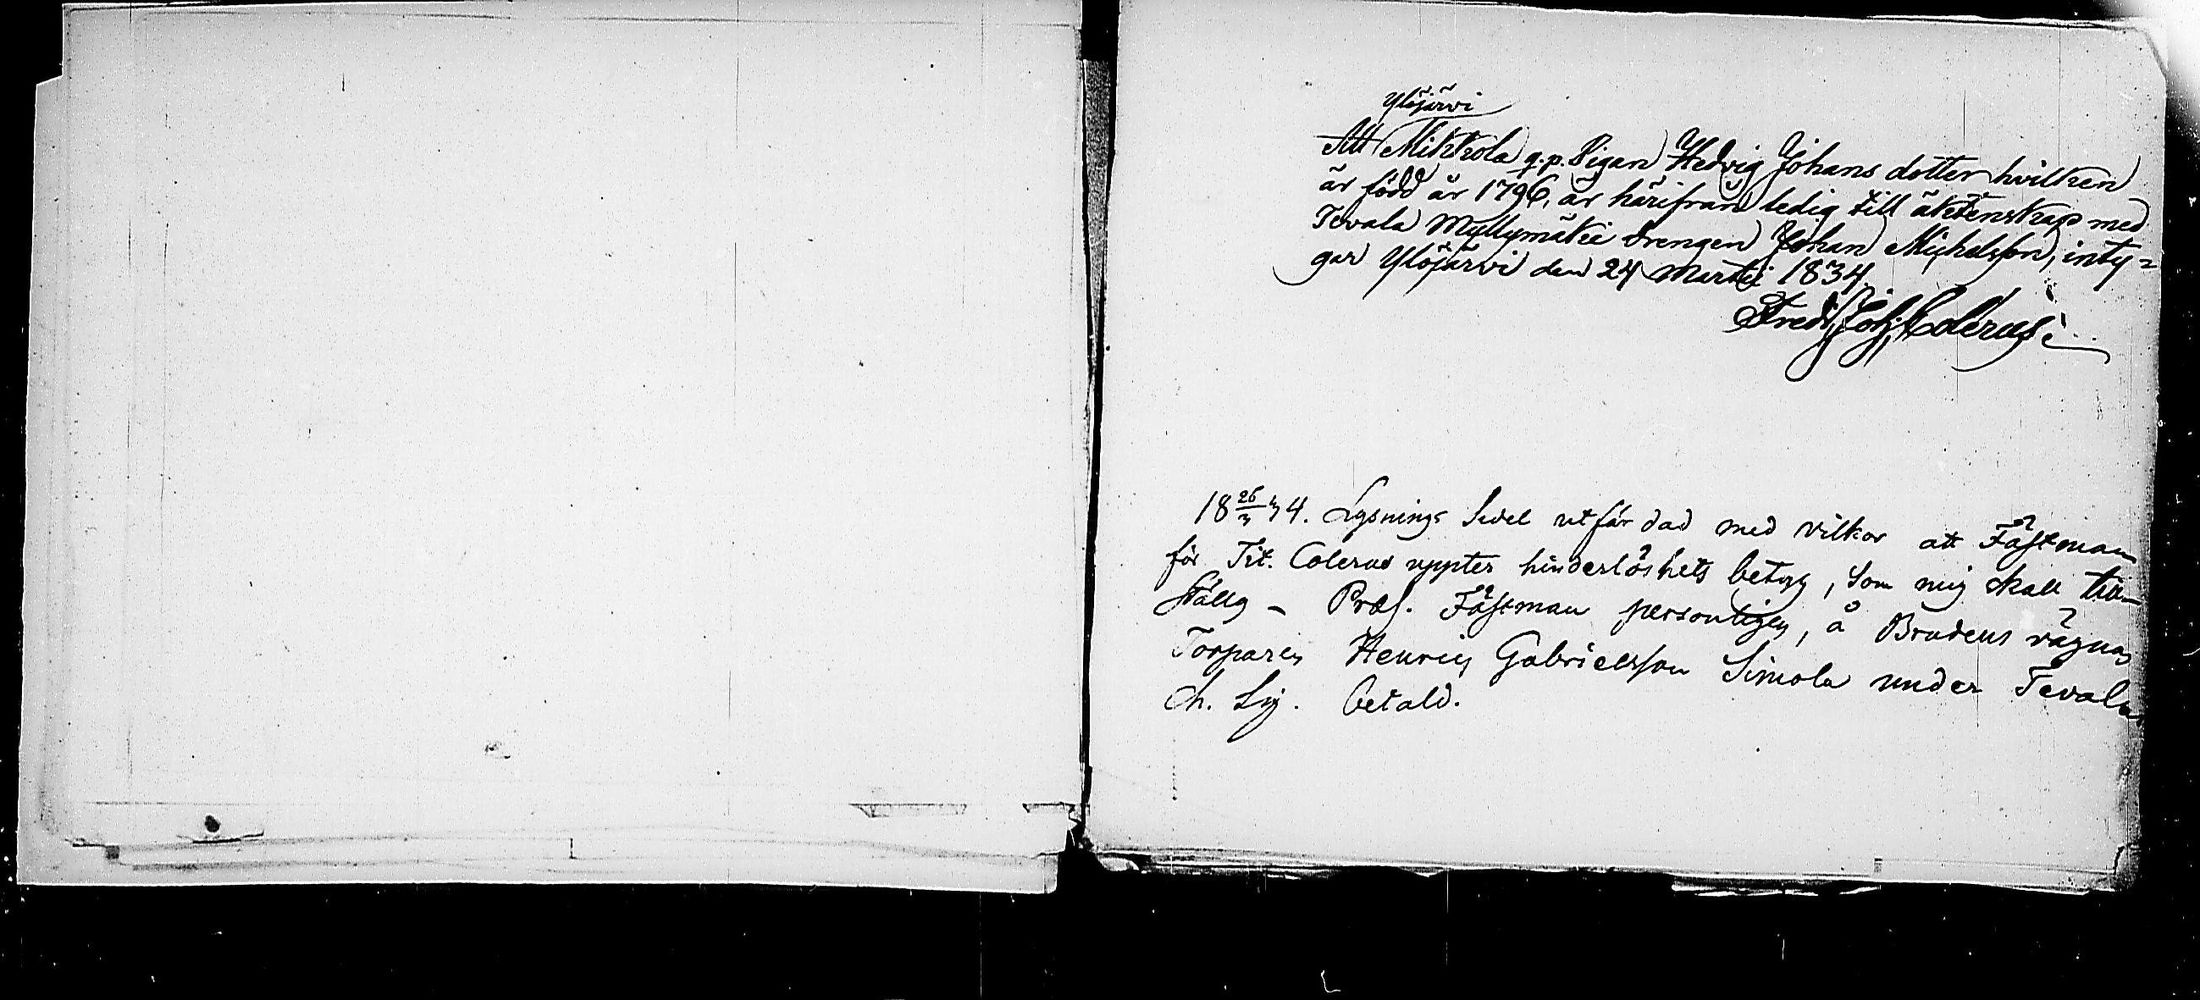 Ylöjärvi
Att Mikkola q.p. Pigan Hedvig Johans dotter hvilken
är född år 1796, är härifrån ledig till äktenskap med
Tevala Myllymäkii drengen Johan Michelsson, inty=
gar Ylöjärvi den 24 Martii 1834
Fredr. Joh. Colerus
18 26/3 34. Lysnings Sedel utfärdad med vilkor att Fästman
för Tit. Colerus uppter hinderlöshets betyg, som mig skall till-
ställas - Præs. Fästman personligen, å Brudens vägnar
Torparen Henric Gabrielsson Simola under Tevala
Ch. Sig. betald.